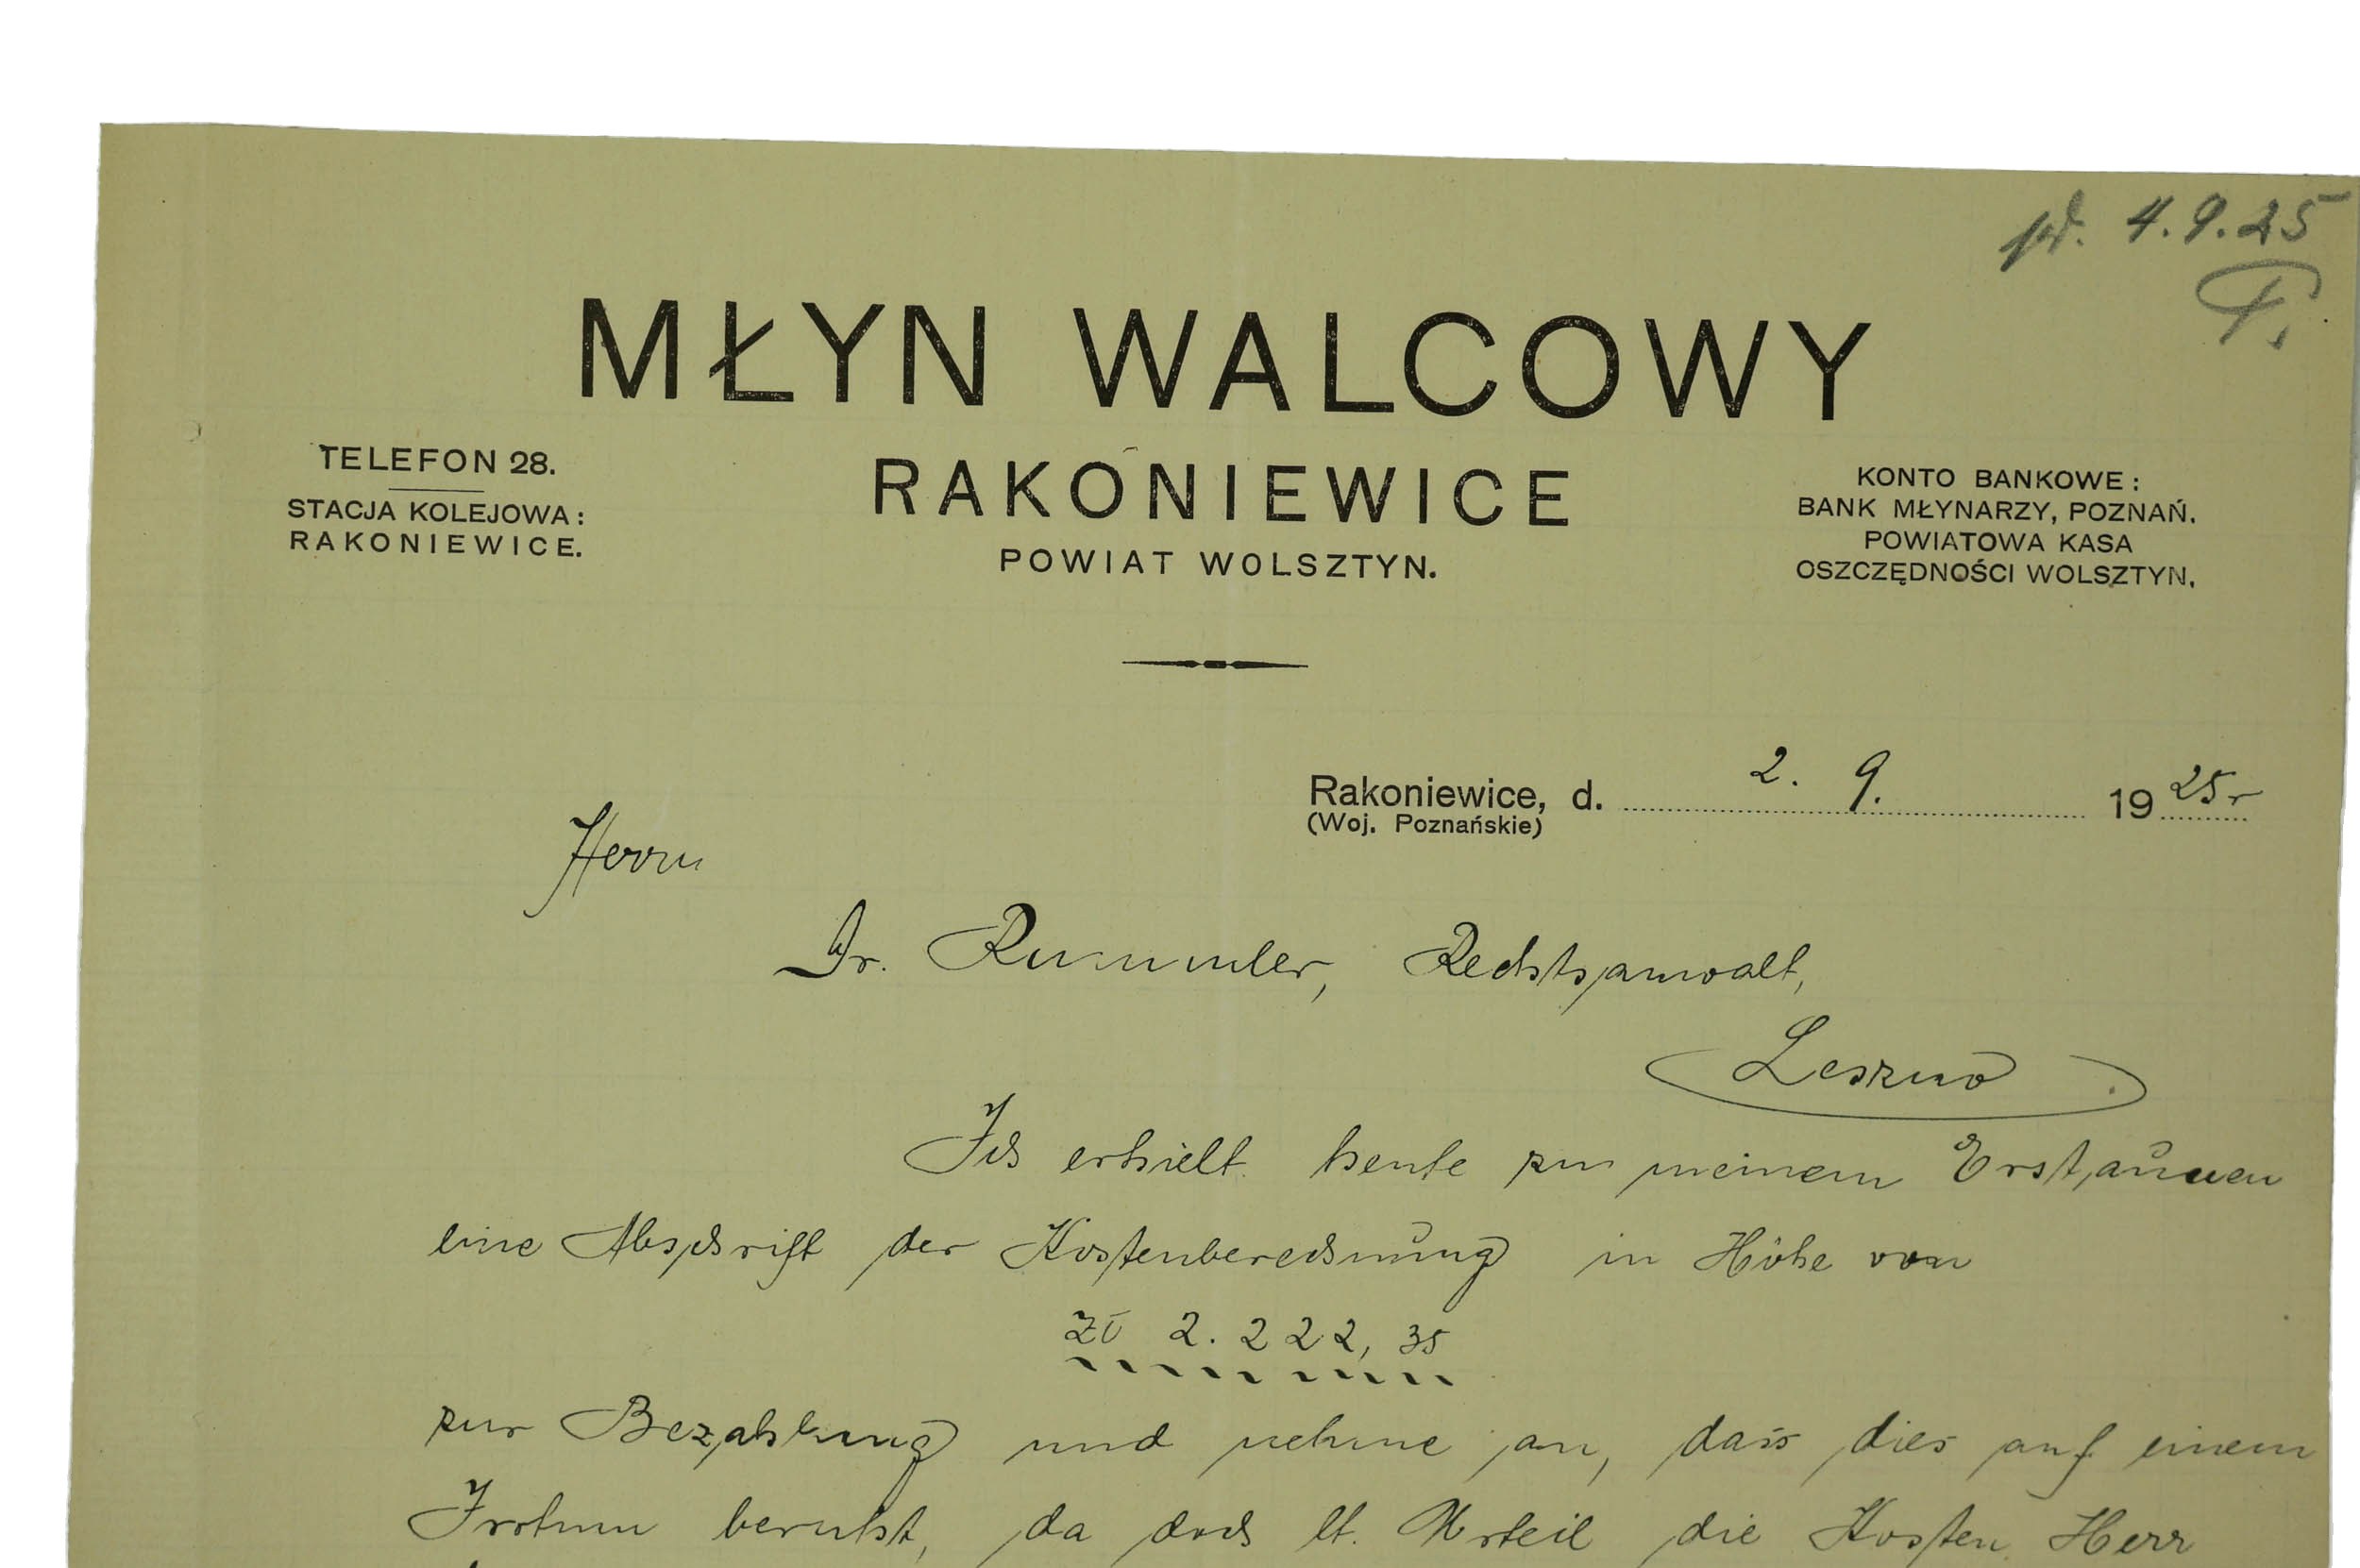 pr. 4.9.25
MŁYN WALCOWY
RAKONIEWICE
POWIAT WOLSZTYN.
TELEFON 28.
STACJA KOLEJOWA:
RAKONIEWICE.
KONTO BANKOWE:
BANK MŁYNARZY, POZNAŃ.
POWIATOWA KASA
OSZCZĘDNOŚCI WOLSZTYN.
Rakoniewice, d. 2. 9. 1925 r
(Woj. Poznańskie)
Herrn
Dr. Rummler, Rechtsanwalt,
Leszno
Ich erhielt heute zu meinem Erstaunen
eine Abschrift der Kostenberechnung in Höhe von
Zł 2.222,35
zur Bezahlung und nehme an, dass dies auf einem
Irrtum beruht, da doch lt. Urteil die Kosten Herr